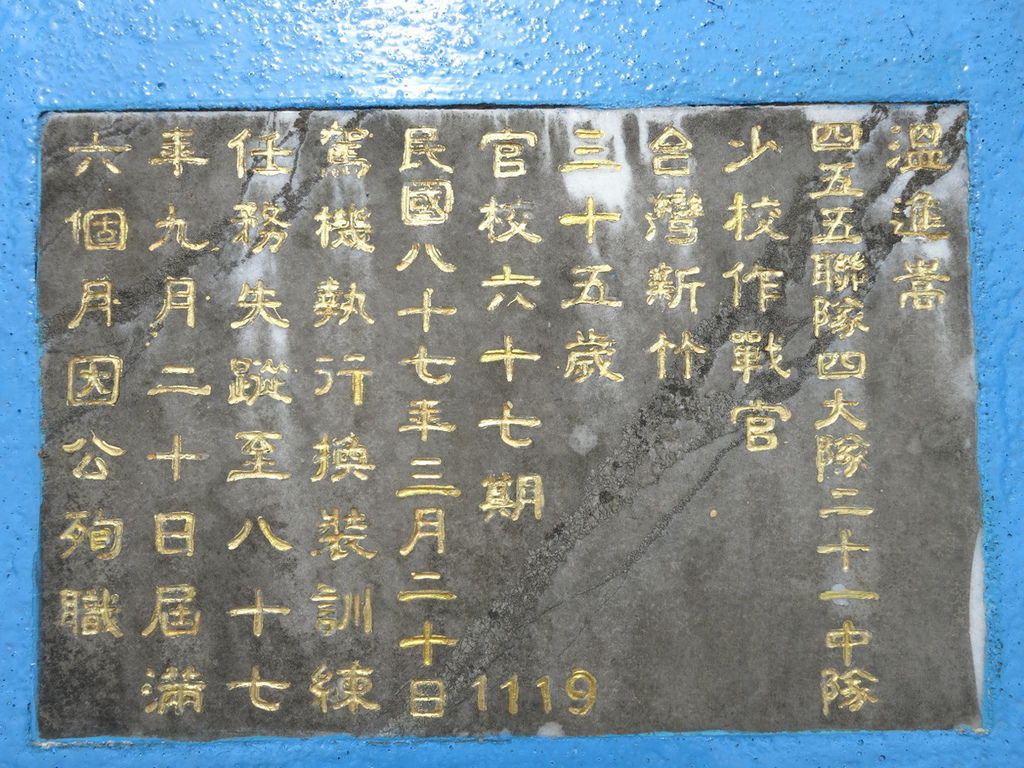 溫進嵩
四五五聯隊四大隊二十一中隊
少校作戰官
台灣新竹
三十五歲
官校六十七期
民國八十七年三月二十日
駕機執行換裝訓練
任務失蹤至八十七
年九月二十日屆滿
六個月因公殉職
1119